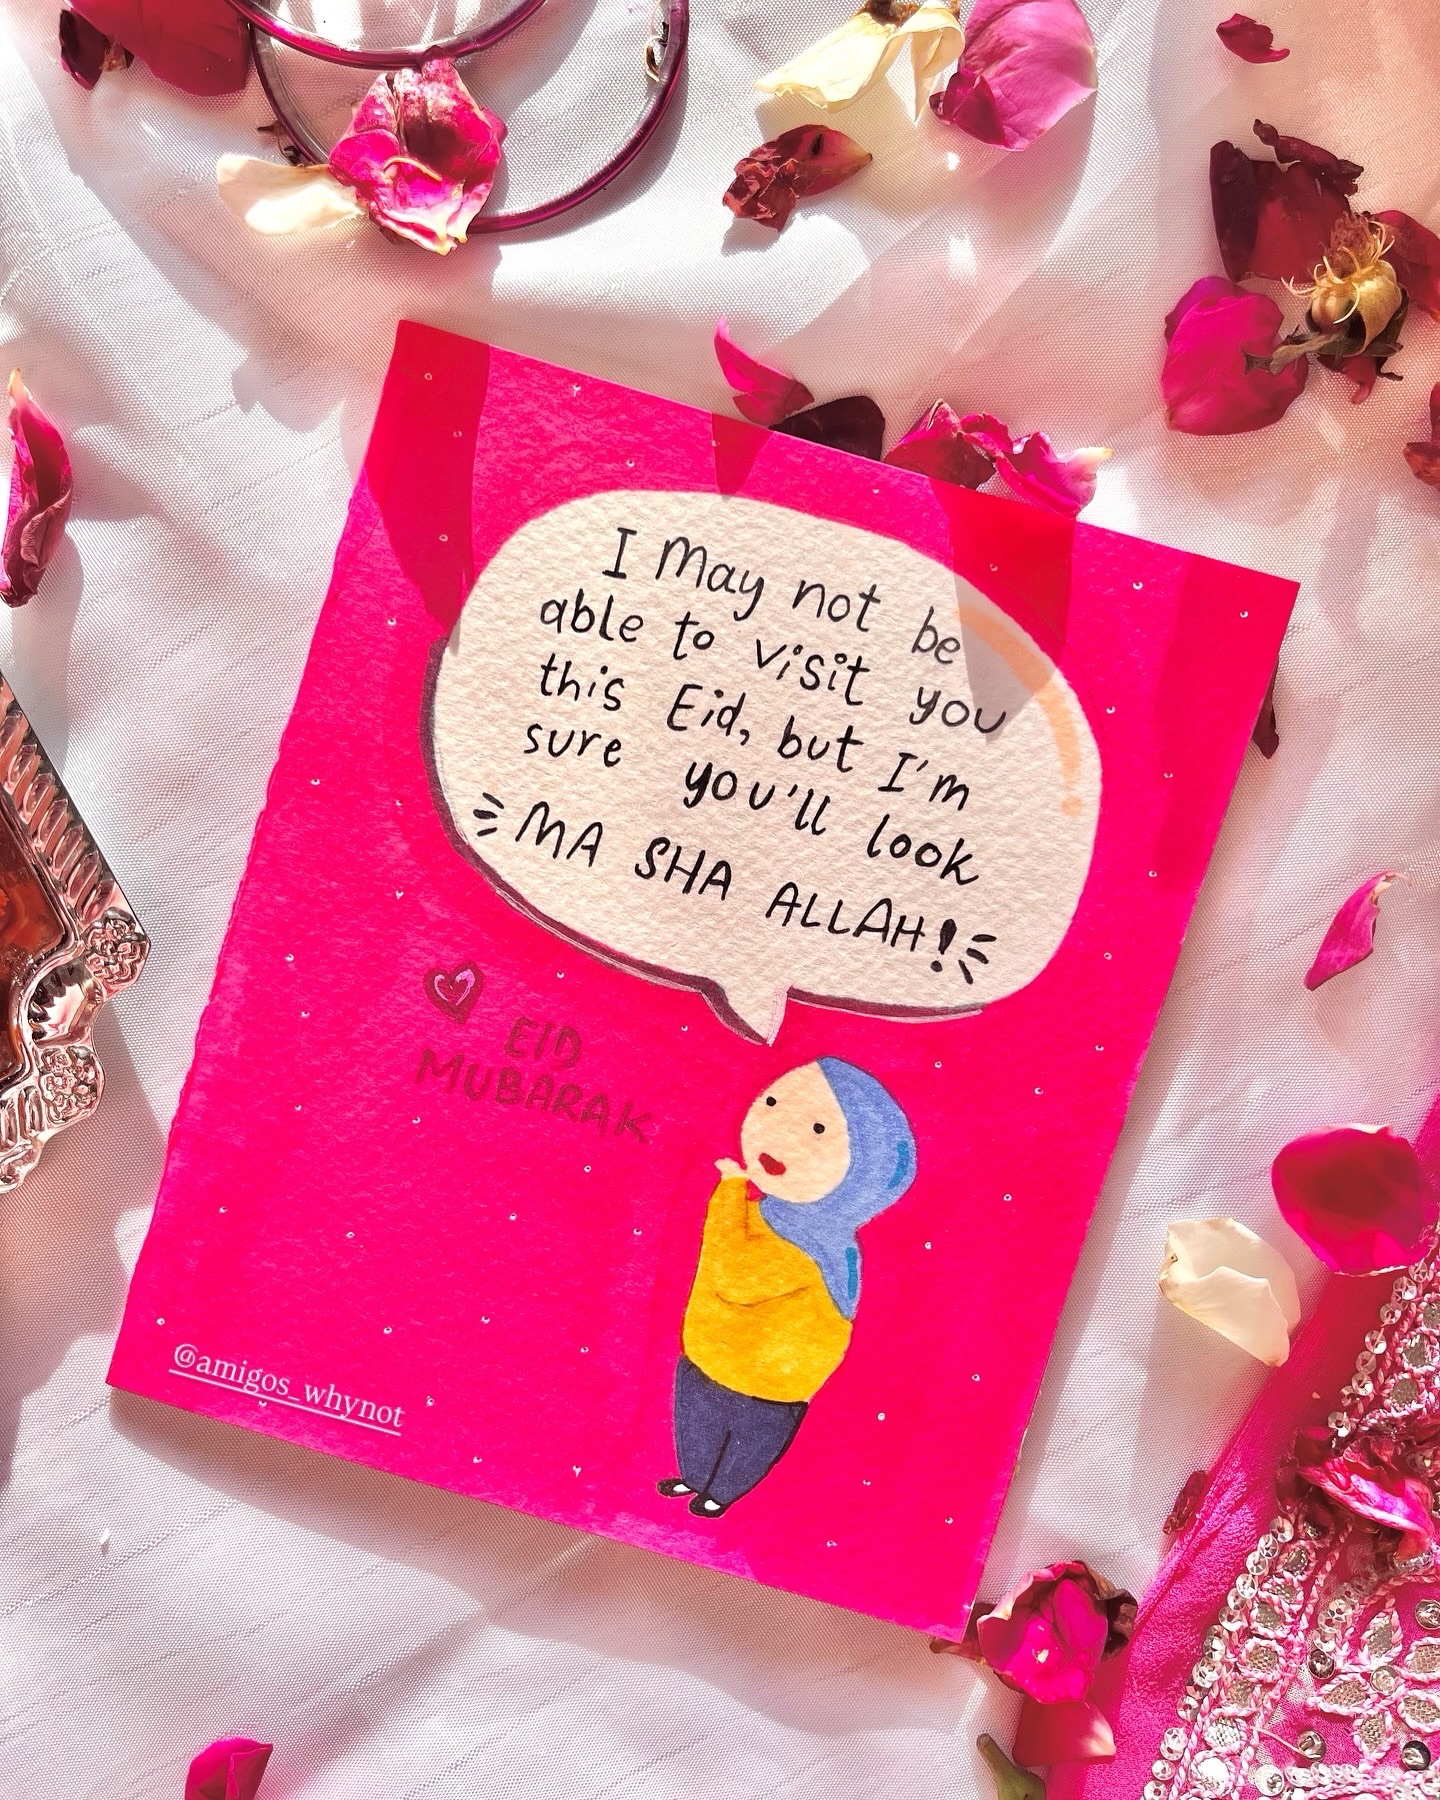 I May not be
able to visit you
this Eid, but I'm
sure you'll look
MA SHA ALLAH!
EID
MUBARAK
@amigos_whynot